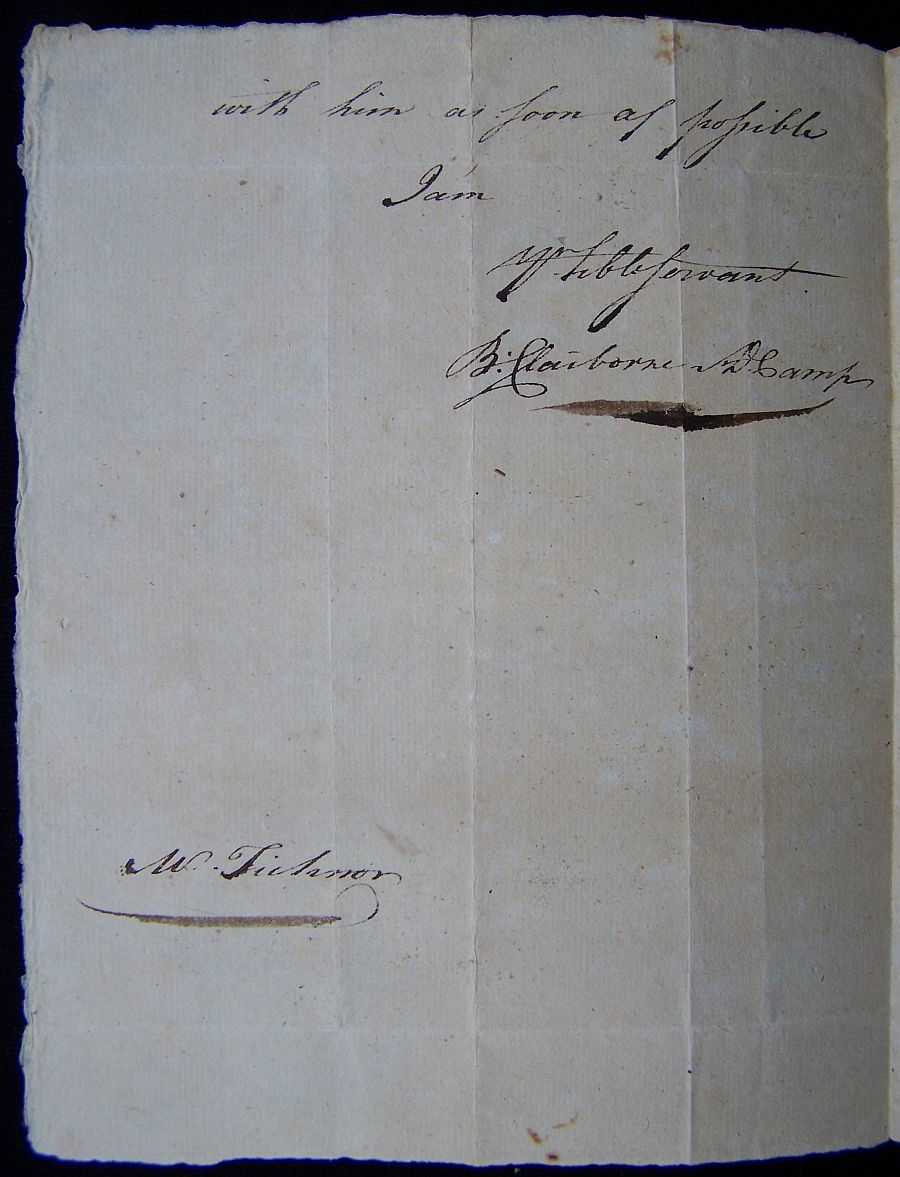 with him as soon as possible
I am
Yr hble servant
B. Claiborne A D Camp
Mr. Tichnor